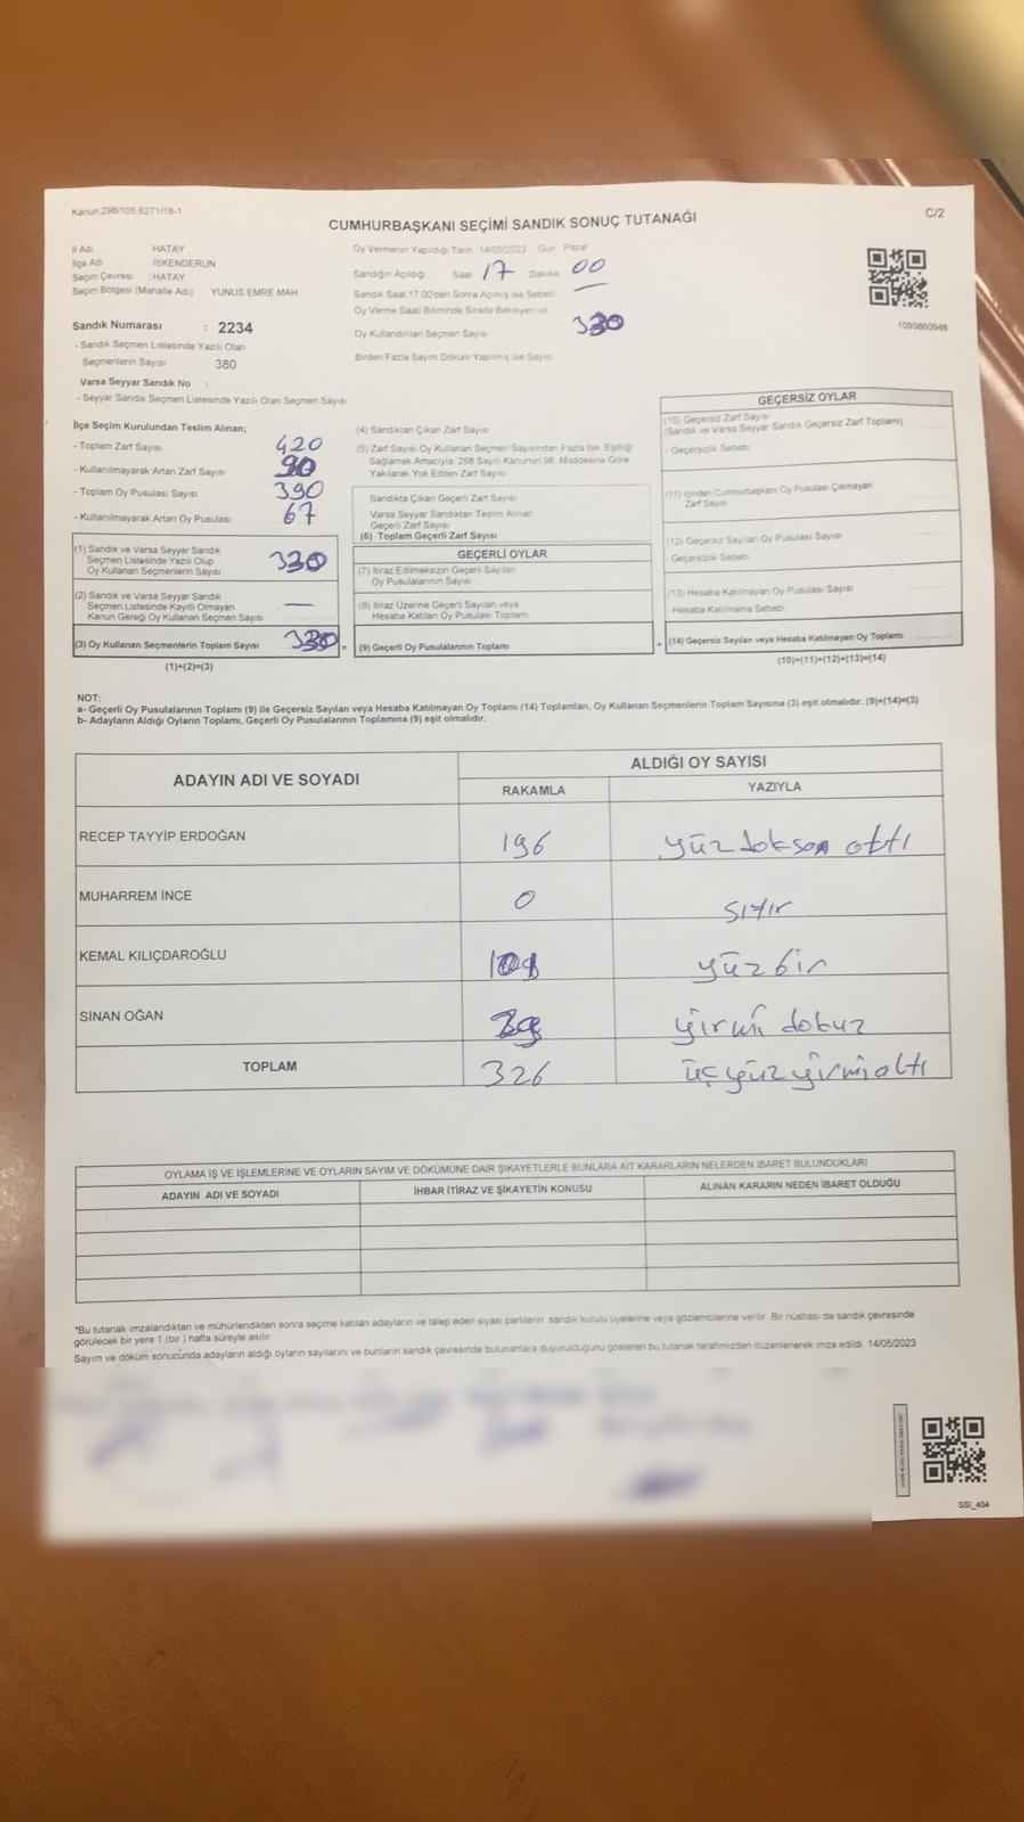 Kanun:298/105.6271/18-1
C/2
CUMHURBAŞKANI SEÇİMİ SANDIK SONUÇ TUTANAĞI
İl Adı HATAY
İlçe Adı İSKENDERUN
Seçim Çevresi :HATAY
Seçim Bölgesi (Mahalle Adı) YUNUS EMRE MAH
Sandık Numarası : 2234
- Sandık Seçmen Listesinde Yazılı Olan
Seçmenlerin Sayısı 380
Varsa Seyyar Sandık No :
- Seyyar Sandık Seçmen Listesinde Yazılı Olan Seçmen Sayısı
Oy Vermenin Yapıldığı Tarih 14/05/2023 Gün Pazar
Sandığın Açılışı Saat 17 Dakika 00
Sandık Saat 17.00'den Sonra Açılmış ise Sebebi
Oy Kullandırılan Seçmen Sayısı 330
Birden Fazla Sayım Döküm Yapılmış ise Sayısı
İlçe Seçim Kurulundan Teslim Alınan;
- Toplam Zarf Sayısı 420
- Kullanılmayarak Artan Zarf Sayısı 90
- Toplam Oy Pusulası Sayısı 390
- Kullanılmayarak Artan Oy Pusulası 67
(1) Sandık ve Varsa Seyyar Sandık
Seçmen Listesinde Yazılı Olup
Oy Kullanan Seçmenlerin Sayısı 330
(2) Sandık ve Varsa Seyyar Sandık
Seçmen Listesinde Kayıtlı Olmayan
Kanun Gereği Oy Kullanan Seçmen Sayısı —
(3) Oy Kullanan Seçmenlerin Toplam Sayısı 330
(1)+(2)=(3)
(4) Sandıktan Çıkan Zarf Sayısı
(5) Zarf Sayısı Oy Kullanan Seçmen Sayısından Fazla ise, Eşitliği
Sağlamak Amacıyla 298 Sayılı Kanunun 98. Maddesine Göre
Yakılarak Yok Edilen Zarf Sayısı
Sandıkta Çıkan Geçerli Zarf Sayısı
Varsa Seyyar Sandıktan Teslim Alınan
Geçerli Zarf Sayısı
(6) Toplam Geçerli Zarf Sayısı
GEÇERLİ OYLAR
(7) İtiraz Edilmeksizin Geçerli Sayılan
Oy Pusulalarının Sayısı
(8) İtiraz Üzerine Geçerli Sayılan veya
Hesaba Katılan Oy Pusulası Toplamı
(9) Geçerli Oy Pusulalarının Toplamı
GEÇERSİZ OYLAR
(10) Geçersiz Zarf Sayısı
(Sandık ve Varsa Seyyar Sandık Geçersiz Zarf Toplamı)
- Geçersizlik Sebebi
(11) İçinden Cumhurbaşkanı Oy Pusulası Çıkmayan
Zarf Sayısı
(12) Geçersiz Sayılan Oy Pusulası Sayısı
- Geçersizlik Sebebi
(13) Hesaba Katılmayan Oy Pusulası Sayısı
Hesaba Katılmama Sebebi
(14) Geçersiz Sayılan veya Hesaba Katılmayan Oy Toplamı
(10)+(11)+(12)+(13)=(14)
NOT:
a- Geçerli Oy Pusulalarının Toplamı (9) ile Geçersiz Sayılan veya Hesaba Katılmayan Oy Toplamı (14) Toplamları, Oy Kullanan Seçmenlerin Toplam Sayısına (3) eşit olmalıdır. (9)+(14)=(3)
b- Adayların Aldığı Oyların Toplamı, Geçerli Oy Pusulalarının Toplamına (9) eşit olmalıdır.
ADAYIN ADI VE SOYADI
ALDIĞI OY SAYISI
RAKAMLA YAZIYLA
RECEP TAYYİP ERDOĞAN 196 yüz doksan altı
MUHARREM İNCE 0 sıfır
KEMAL KILIÇDAROĞLU 101 yüzbir
SİNAN OĞAN 29 yirmi dokuz
TOPLAM 326 üçyüzyirmialtı
OYLAMA İŞ VE İŞLEMLERİNE VE OYLARIN SAYIM VE DÖKÜMÜNE DAİR ŞİKAYETLERLE BUNLARA AİT KARARLARIN NELERDEN İBARET BULUNDUKLARI
ADAYIN ADI VE SOYADI İHBAR İTİRAZ VE ŞİKAYETİN KONUSU ALINAN KARARIN NEDEN İBARET OLDUĞU
*Bu tutanak imzalandıktan ve mühürlendikten sonra seçime katılan adayların ve talep eden siyasi partilerin sandık kurulu üyelerine veya gözlemcilerine verilir. Bir nüshası da sandık çevresinde
görülecek bir yere 1 (bir) hafta süreyle asılır.
Sayım ve döküm sonucunda adayların aldığı oyların sayılarını ve bunların sandık çevresinde bulunanlara duyurulduğunu gösteren bu tutanak tarafımızdan düzenlenerek imza edildi. 14/05/2023